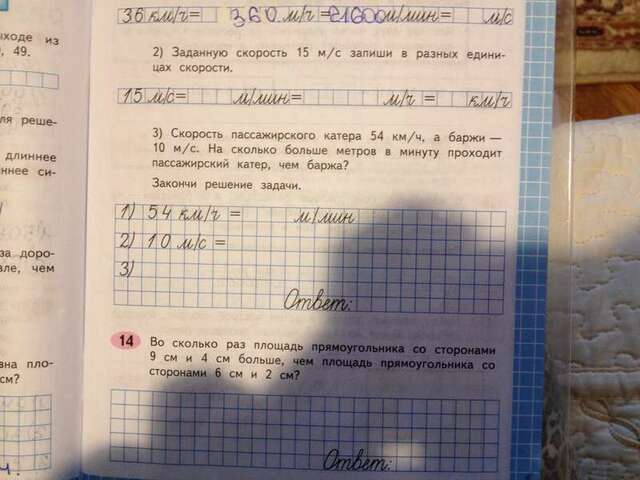 36 км/ч= 360 м/ч =21600м/мин= м/с
ыходе из
, 49.
2) Заданную скорость 15 м/с запиши в разных едини-
цах скорости.
15 м/с= м/мин= м/ч = км/ч
ля реше-
длиннее
ннее си-
3) Скорость пассажирского катера 54 км/ч, а баржи —
10 м/с. На сколько больше метров в минуту проходит
пассажирский катер, чем баржа?
Закончи решение задачи.
1) 54 км/ч = м/мин
2) 10 м/с =
3)
Ответ:
за доро-
вле, чем
14 Во сколько раз площадь прямоугольника со сторонами
9 см и 4 см больше, чем площадь прямоугольника со
сторонами 6 см и 2 см?
вна пло-
см?
Ответ: